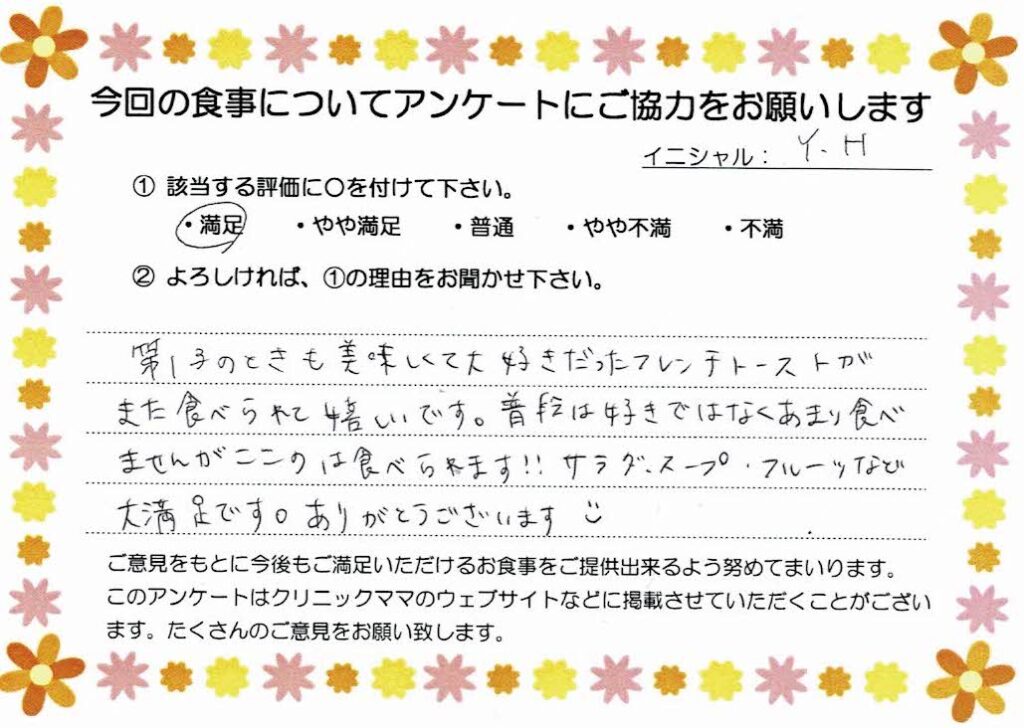 今回の食事についてアンケートにご協力をお願いします
イニシャル： Y.H
① 該当する評価に〇を付けて下さい。
・満足 ・やや満足 ・普通 ・やや不満 ・不満
② よろしければ、①の理由をお聞かせ下さい。
第1子のときも美味しくて大好きだったフレンチトーストが
また食べられて嬉しいです。普段は好きではなくあまり食べ
ませんがここのは食べられます!! サラダ、スープ・フルーツなど
大満足です。ありがとうございます
ご意見をもとに今後もご満足いただけるお食事をご提供出来るよう努めてまいります。
このアンケートはクリニックママのウェブサイトなどに掲載させていただくことがござい
ます。たくさんのご意見をお願い致します。